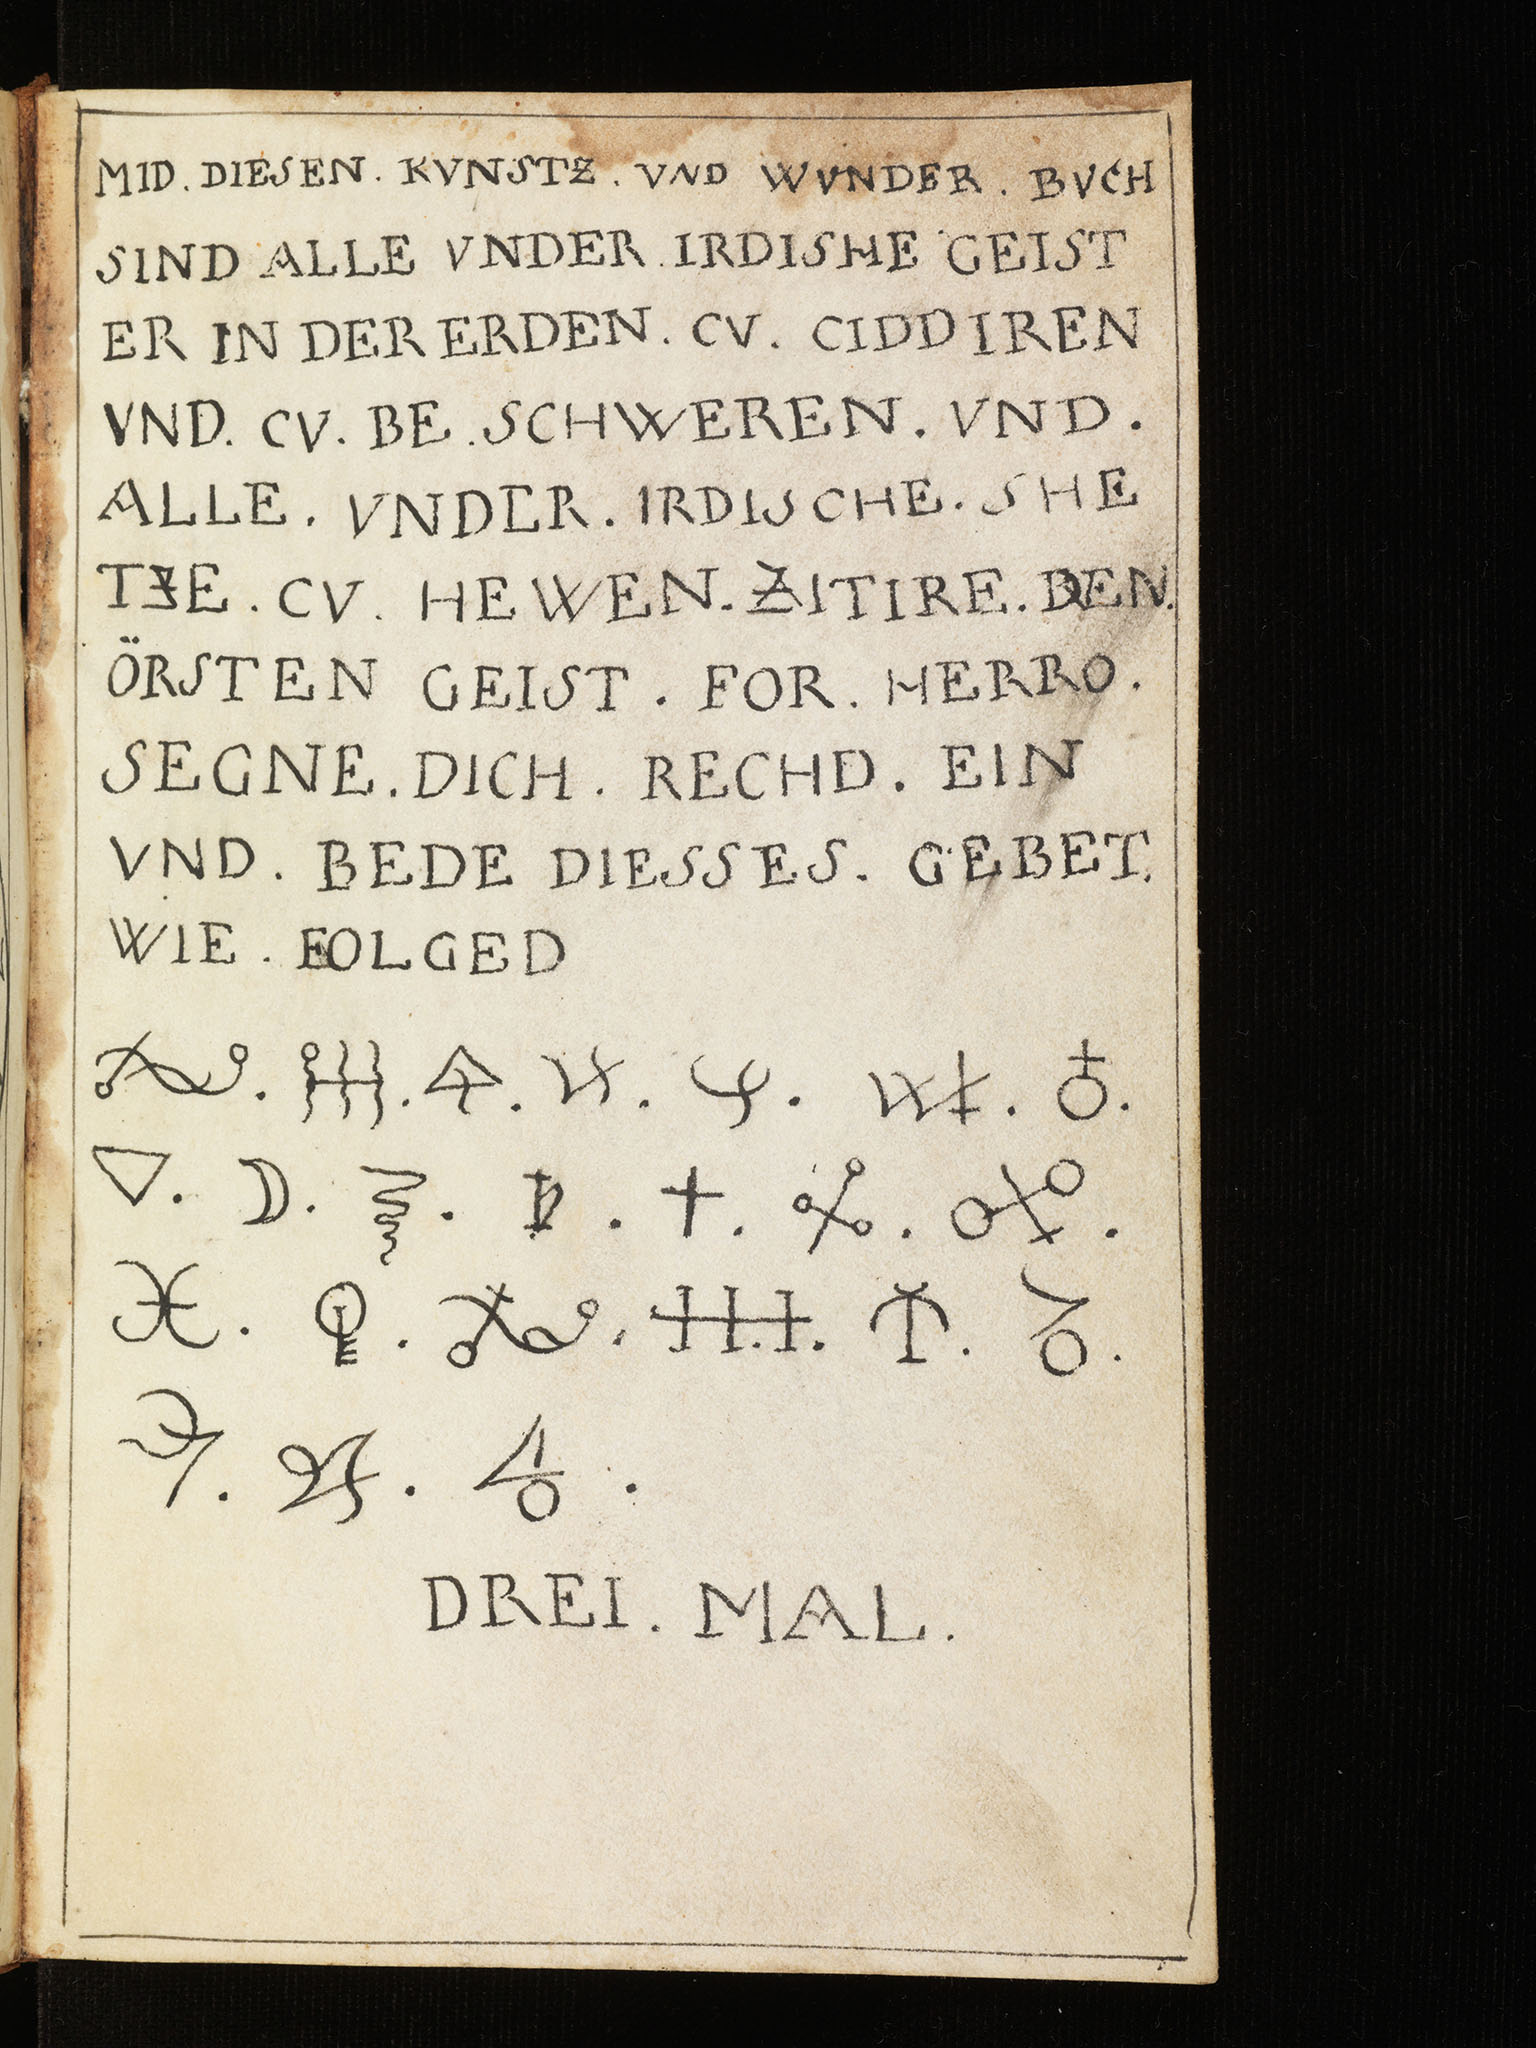 MID. DIESEN. KVNSTZ. VND WVNDER. BVCH
SIND ALLE VNDER. IRDISHE GEIST
ER IN DER ERDEN. CV. CIDDIREN
VND. CV. BE. SCHWEREN. VND.
ALLE. VNDER. IRDISCHE. SHE
TZE. CV. HEWEN. ZITIRE. DEN.
ÖRSTEN GEIST. FOR. HERRO.
SEGNE. DICH. RECHD. EIN
VND. BEDE DIESSES. GEBET.
WIE. FOLGED
DREI. MAL.